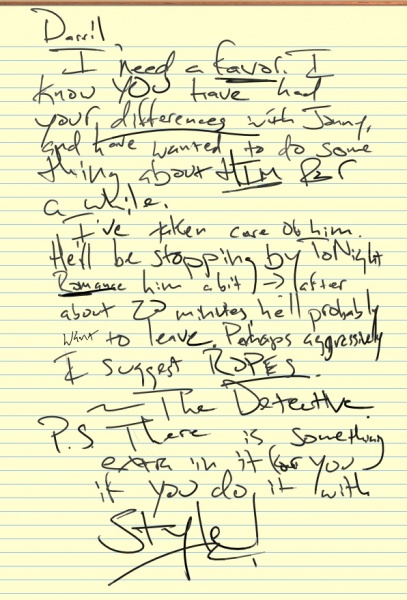 Darril,
I need a favor. I
know YOU have had
your differences with Jonny,
and have wanted to do some
thing about HIM for
a while.
I've taken care of him.
He'll be stopping by ToNight
Romance him a bit) → (after
about 20 minutes he'll probably
want to leave. Perhaps aggressively
I suggest ROPES.
~ The Detective.
P.S. There is something
extra in it for you
if you do it with
Style!